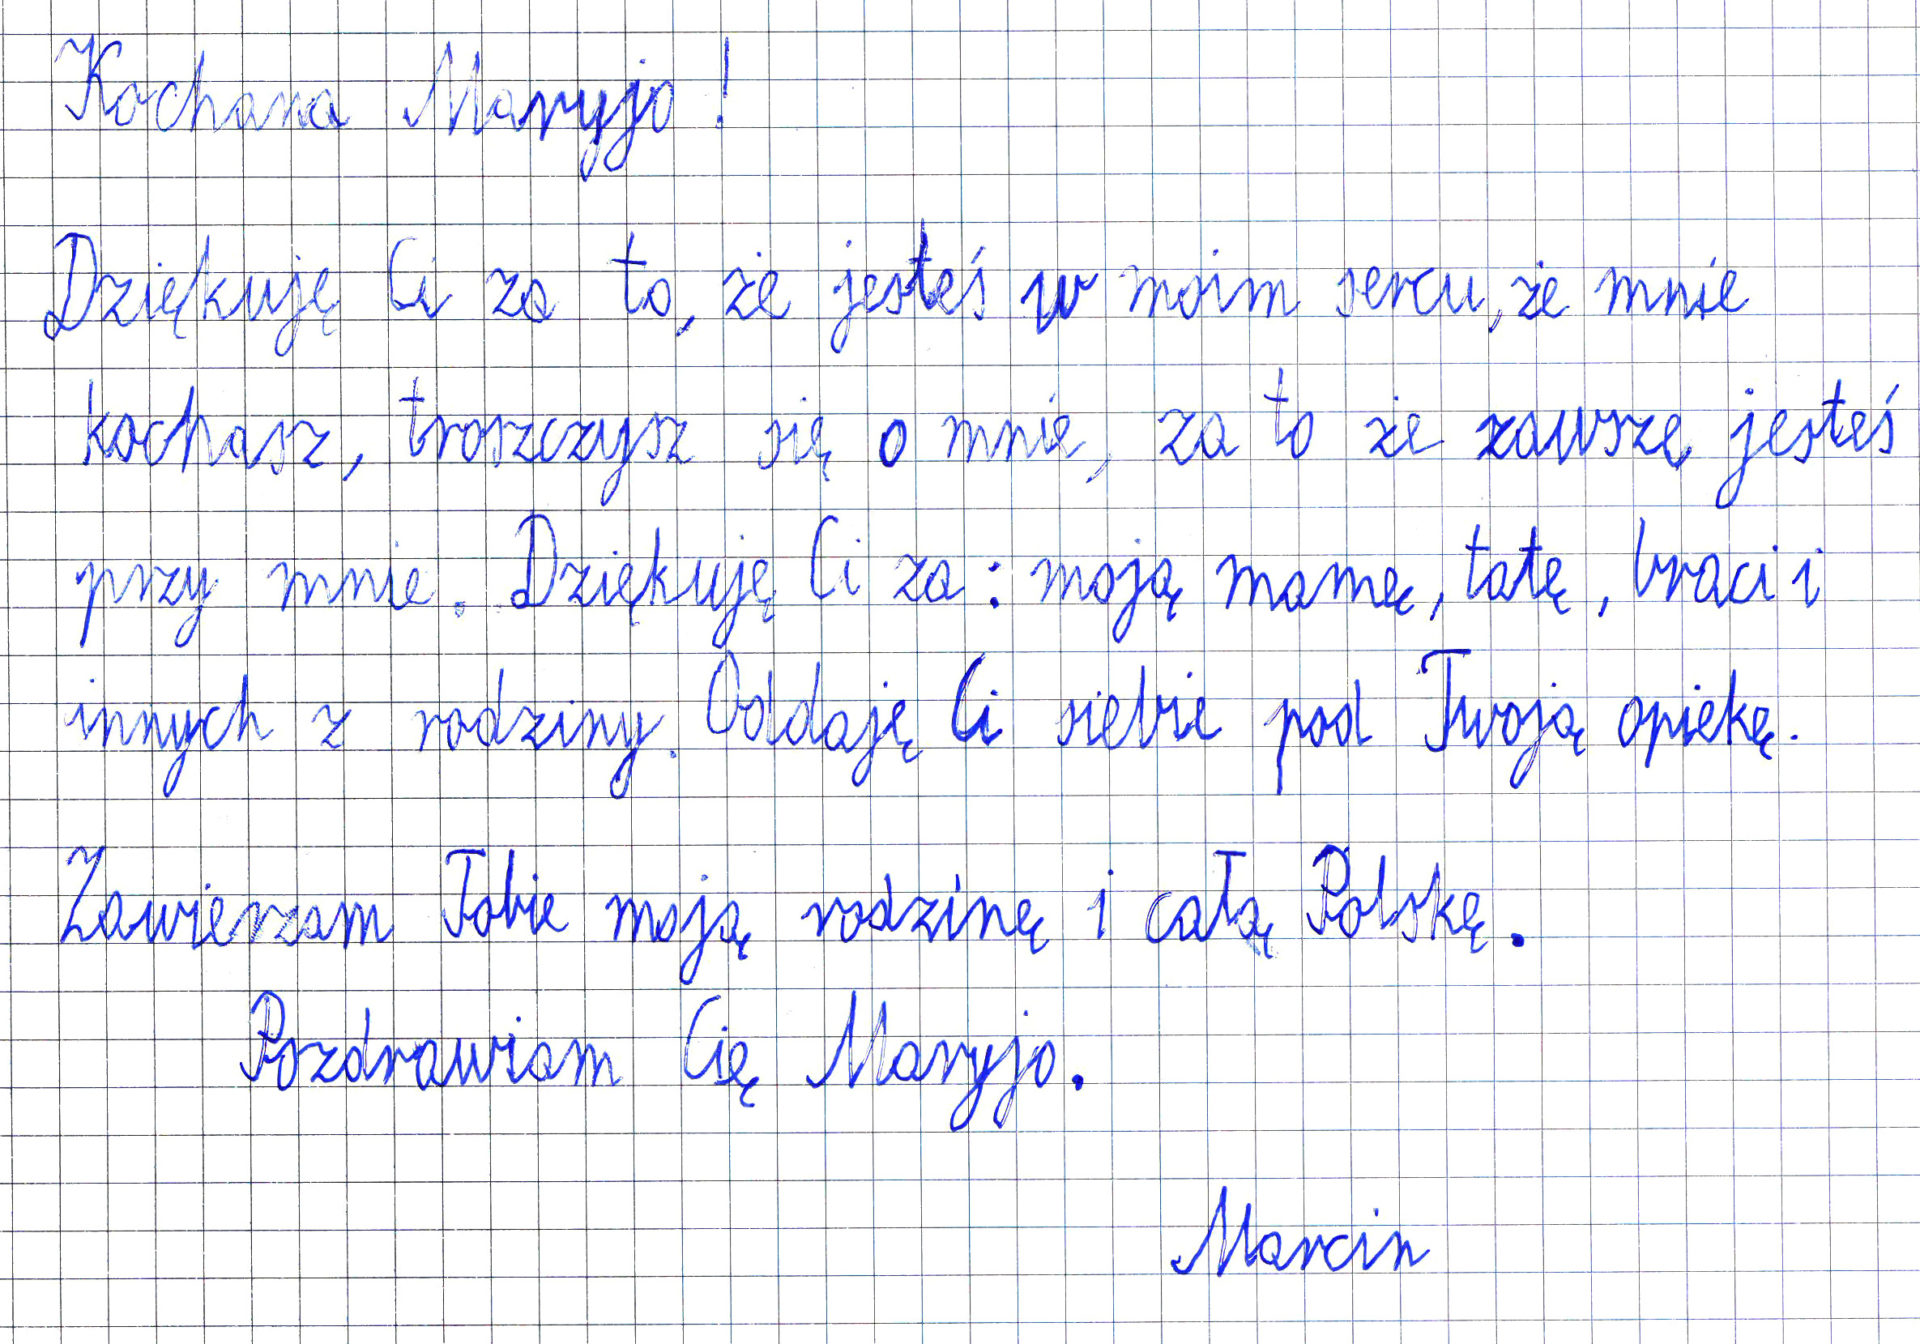 Kochana Maryjo!
Dziękuję Ci za to, że jesteś w moim sercu, że mnie
kochasz, troszczysz się o mnie, za to że zawsze jesteś
przy mnie. Dziękuję Ci za: moją mamę, tatę, braci i
innych z rodziny. Oddaję Ci siebie pod Twoją opiekę.
Zawierzam Tobie moją rodzinę i całą Polskę.
Pozdrawiam Cię Maryjo.
Marcin